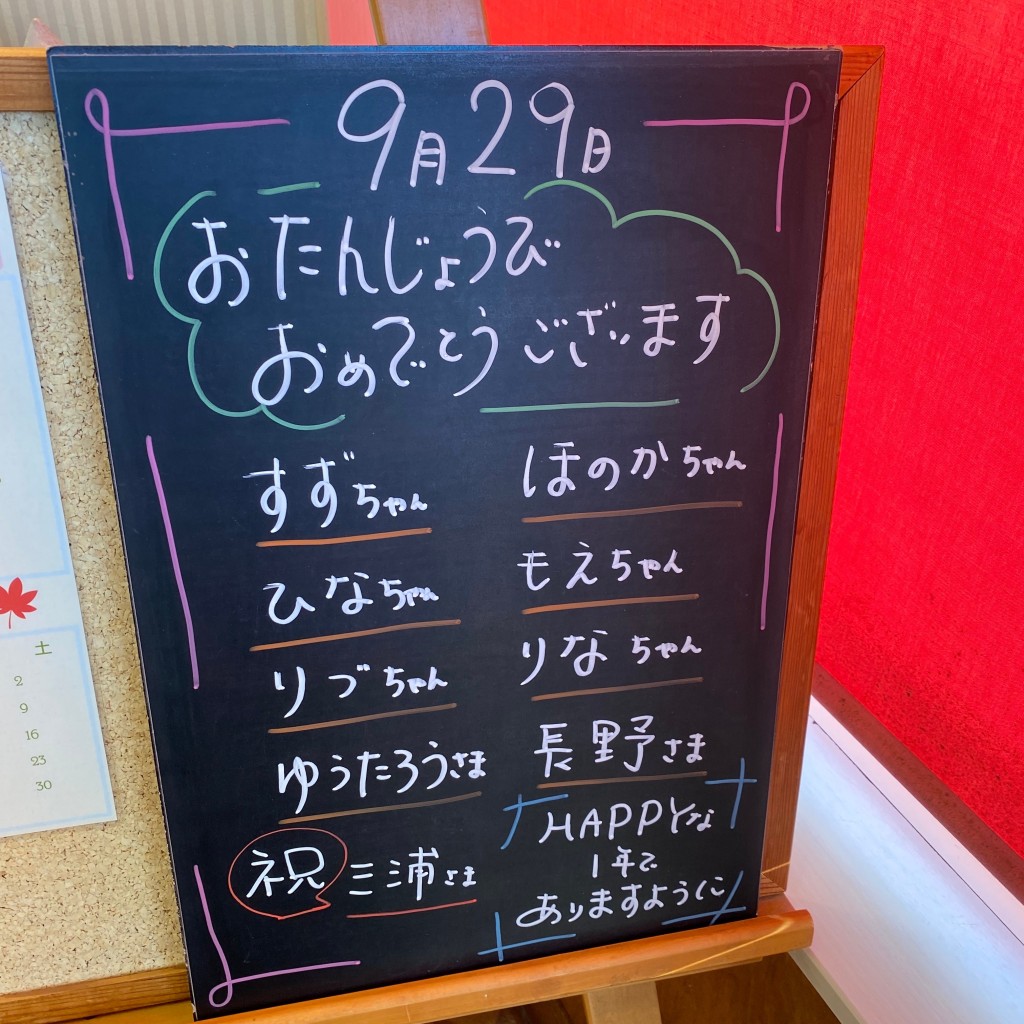 9月29日
おたんじょうび
おめでとうございます
すずちゃん
ほのかちゃん
ひなちゃん
もえちゃん
りづちゃん
りなちゃん
ゆうたろうさま
長野さま
祝 三浦さま
HAPPYな
1年で
ありますように
土
2
9
16
23
30